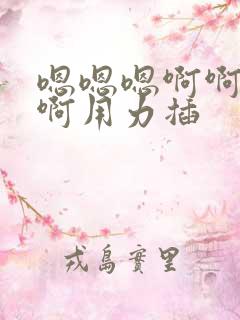 嗯嗯嗯啊啊
啊用力插
戎島實里